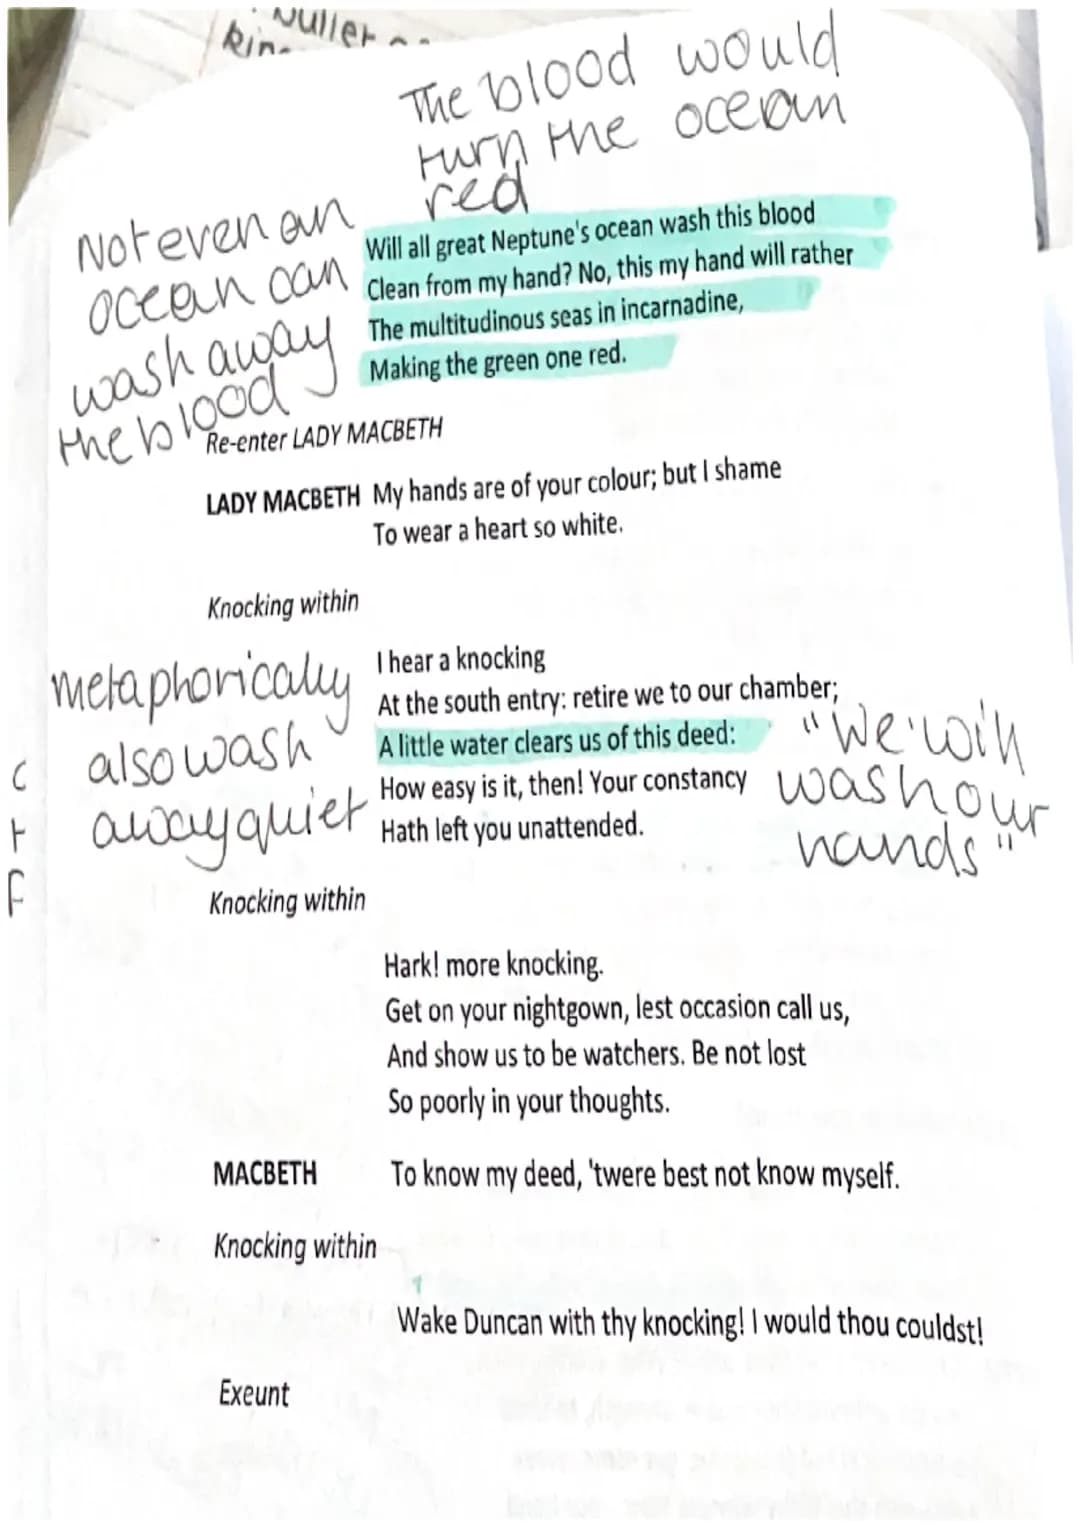 bullet
kin
The blood would
turn the ocean
red
Not even an
ocean can
wash away
the blood
Will all great Neptune's ocean wash this blood
Clean from my hand? No, this my hand will rather
The multitudinous seas in incarnadine,
Making the green one red.
Re-enter LADY MACBETH
LADY MACBETH My hands are of your colour; but I shame
To wear a heart so white.
Knocking within
I hear a knocking
At the south entry: retire we to our chamber;
A little water clears us of this deed:
How easy is it, then! Your constancy
Hath left you unattended.
metaphorically
also wash
away quiet
"We will
wash our
hands"
Knocking within
Hark! more knocking.
Get on your nightgown, lest occasion call us,
And show us to be watchers. Be not lost
So poorly in your thoughts.
MACBETH To know my deed, 'twere best not know myself.
Knocking within
Wake Duncan with thy knocking! I would thou couldst!
Exeunt